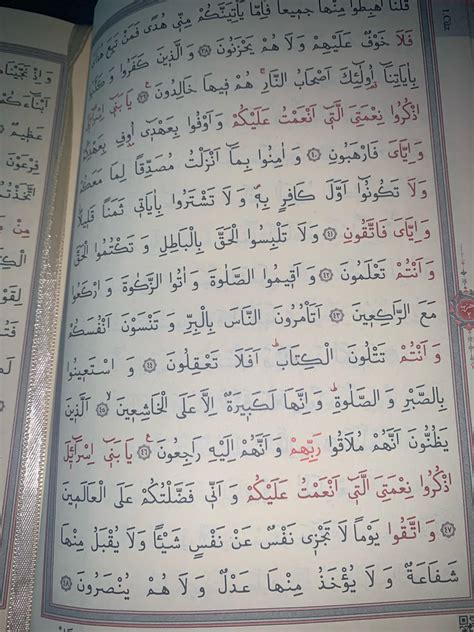 قُلْنَا اهْبِطُوا مِنْهَا جَمِيعًا فَاِمَّا يَأْتِيَنَّكُمْ مِنّ۪ى هُدًى فَمَنْ تَبِعَ
فَلَا خَوْفٌ عَلَيْهِمْ وَ لَا هُمْ يَحْزَنُونَ ﴿٣٨﴾ وَ الَّذ۪ينَ كَفَرُوا وَ
بِاٰيَاتِنَا اُولٰٓئِكَ اَصْحَابُ النَّارِ هُمْ ف۪يهَا خَالِدُونَ ﴿٣٩﴾ يَا بَن۪ٓى اِسْرَٓائ۪لَ
اذْكُرُوا نِعْمَتِىَ الَّت۪ٓى اَنْعَمْتُ عَلَيْكُمْ وَ اَوْفُوا بِعَهْد۪ٓى اُوفِ بِعَهْدِ
وَ اِيَّاىَ فَارْهَبُونِ ﴿٤٠﴾ وَ اٰمِنُوا بِمَٓا اَنْزَلْتُ مُصَدِّقًا لِمَا
وَلَا تَكُونُٓوا اَوَّلَ كَافِرٍ بِه۪ وَ لَا تَشْتَرُوا بِاٰيَات۪ى ثَمَنًا قَل۪يلًا
وَ اِيَّاىَ فَاتَّقُونِ ﴿٤١﴾ وَ لَا تَلْبِسُوا الْحَقَّ بِالْبَاطِلِ وَ تَكْتُمُوا الْحَقَّ
وَ اَنْتُمْ تَعْلَمُونَ ﴿٤٢﴾ وَ اَق۪يمُوا الصَّلٰوةَ وَ اٰتُوا الزَّكٰوةَ وَ ارْكَعُوا
مَعَ الرَّاكِع۪ينَ ﴿٤٣﴾ اَتَأْمُرُونَ النَّاسَ بِالْبِرِّ وَ تَنْسَوْنَ اَنْفُسَكُمْ
وَ اَنْتُمْ تَتْلُونَ الْكِتَابَ اَفَلَا تَعْقِلُونَ ﴿٤٤﴾ وَ اسْتَع۪ينُوا
بِالصَّبْرِ وَ الصَّلٰوةِ وَ اِنَّهَا لَكَب۪يرَةٌ اِلَّا عَلَى الْخَاشِع۪ينَ ﴿٤٥﴾ اَلَّذ۪ينَ
يَظُنُّونَ اَنَّهُمْ مُلَاقُوا رَبِّهِمْ وَ اَنَّهُمْ اِلَيْهِ رَاجِعُونَ ﴿٤٦﴾ يَا بَن۪ٓى اِسْرَٓائ۪لَ
اذْكُرُوا نِعْمَتِىَ الَّت۪ٓى اَنْعَمْتُ عَلَيْكُمْ وَ اَنّ۪ى فَضَّلْتُكُمْ عَلَى الْعَالَم۪ينَ
﴿٤٧﴾ وَ اتَّقُوا يَوْمًا لَا تَجْز۪ى نَفْسٌ عَنْ نَفْسٍ شَيْـًٔا وَ لَا يُقْبَلُ مِنْهَا
شَفَاعَةٌ وَ لَا يُؤْخَذُ مِنْهَا عَدْلٌ وَ لَا هُمْ يُنْصَرُونَ ﴿٤٨﴾